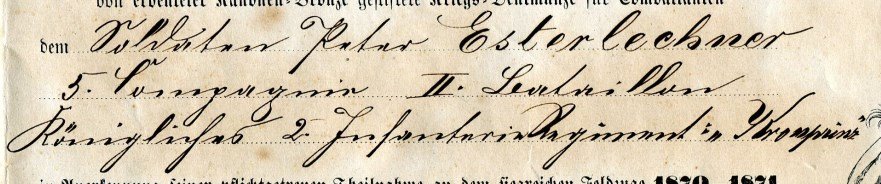 von eroberter Kanonen-Bronze gestiftete Kriegs-Denkmünze für Combattanten
dem Soldaten Peter Esterlechner
5. Compagnie II. Bataillon
Königliches 2. Infanterie Regiment: „Kronprinz"
in Anerkennung seiner pflichtgetreuen Theilnahme an dem siegreichen Feldzuge 1870–1871